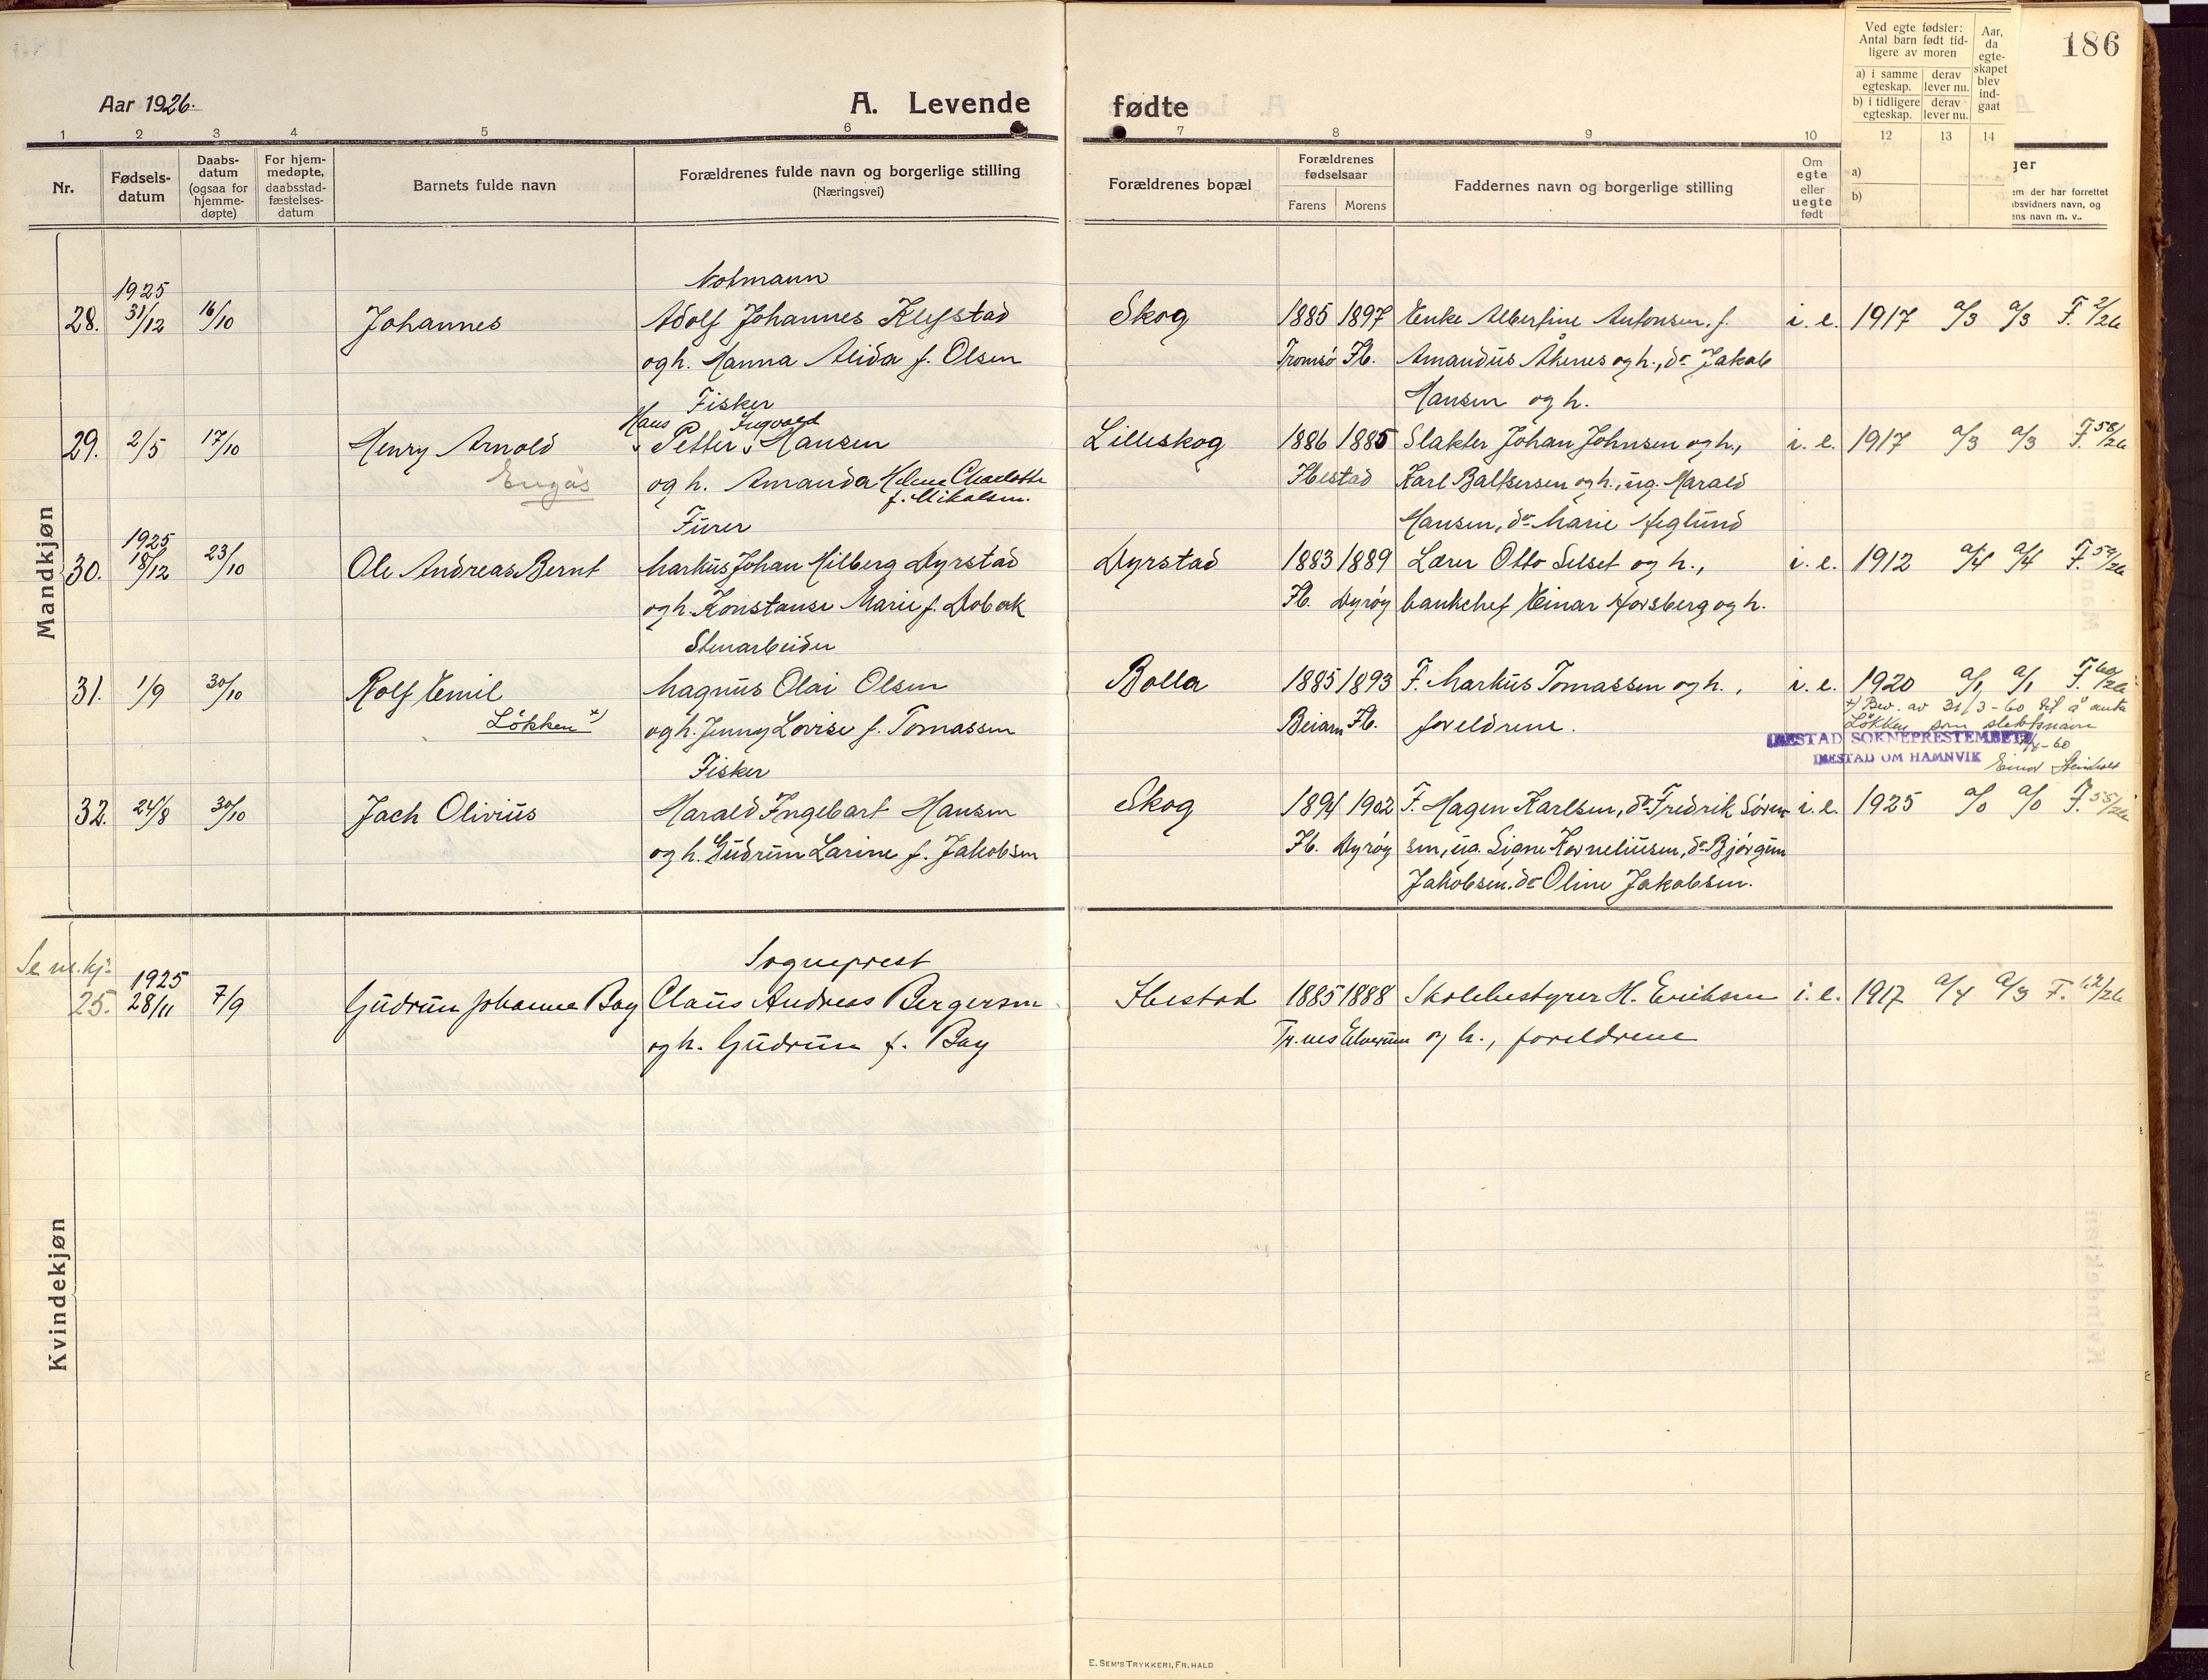 186
Aar 1926.
A. Levende fødte
Ved egte fødsler: Antal barn født tidligere av moren
a) i samme egteskap. derav lever nu.
b) i tidligere egteskap. derav lever nu.
Aar, da egteskapet blev indgaat
1 2 3 4 5 6 7 8 9 10 12 13 14
Nr.
Fødselsdatum
Daabsdatum (ogsaa for hjemmedøpte)
For hjemmedøpte, daabsstadfæstelsesdatum
Barnets fulde navn
Forældrenes fulde navn og borgerlige stilling (Næringsvei)
Forældrenes bopæl
Forældrenes fødselsaar
Farens Morens
Faddernes navn og borgerlige stilling
Om egte eller uegte født
a)
b)
ger
em der har forrettet
bsvidners navn, og
ens navn m. v..
Mandkjøn
1925 Notmann
28. 31/12 16/10 Johannes Adolf Johannes Klefstad Skog 1885 1897 Enke Albertine Antonsen, f. i. e. 1917 a/3 a/3 F. 2/26
og h. Hanna Alida f. Olsen Tromsø Ib. Amandus Åkenes og h., do Jakob
Fisker Hansen og h.
Hans Ingvald
29. 2/5 17/10 Henry Arnold Petter Hansen Lilleskog 1886 1885 Slakter Johan Johnsen og h., i. e. 1917 a/3 a/3 F. 58/26
Engås og h. Amanda Helene Charlotte Ibestad Karl Baltsersen og h., ug. Harald
f. Mikalsen.
Furer Hansen, do Marie Heglund
1925
30. 18/12 23/10 Ole Andreas Bernt Markus Johan Hilberg Dyrstad Dyrstad 1883 1889 Lærer Otto Selset og h., i. e. 1912 a/4 a/4 F. 59/26
og h. Konstanse Marie f. Dobak Ib. Dyrøy bankchef Einar Forsberg og h.
Stenarbeider
31. 1/9 30/10 Rolf Emil Magnus Olai Olsen Bolla 1885 1893 F. Markus Tomassen og h., i. e. 1920 a/1 a/1 F. 60/26
Løkken x) og h. Jenny Lovise f. Tomassen Beiarn Ib. foreldrene.
x) Bev. av 31/3-60 til å anta
Løkken som slektsnavn
IBESTAD SOKNEPRESTEMBETE
IBESTAD OM HAMNVIK
Fisker
32. 24/8 30/10 Jach Olivius Harald Ingebart Hansen Skog 1894 1902 F. Hagen Karlsen, do Fredrik Søren- i. e. 1925 a/0 a/0 F. 55/26
og h. Gudrun Larine f. Jakobsen Ib. Dyrøy sen, ug. Signe Korneliusen, do Bjørgun
Jakobsen. do Oline Jakobsen.
Kvindekjøn
Se m.kj. 1925 Sogneprest
25. 28/11 7/9 Gudrun Johanne Bay Claus Andreas Bergersen Ibestad 1885 1888 Skolebestyrer H. Eriksen i. e. 1917 a/4 a/3 F. 62/26
og h. Gudrun f. Bay Tr.nes Elverum og h., foreldrene
E. SEM'S TRYKKERI, FR.HALD